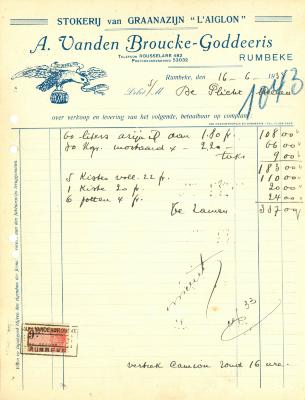 STOKERIJ van GRAANAZIJN "L'AIGLON"
A. Vanden Broucke-Goddeeris
TELEFOON ROUSSELARE 482
POSTCHECKREKENING 53032
RUMBEKE
Rumbeke, den 16-6-193
Debet
1043
over verkoop en levering van het volgende, betaalbaar op comptant
60 liters azijn aan 1.80 fr. 108 00
30 Kgr. mostaard x - 2,20 - 66 00
taks 9 00
183 00
5 Kisten voll. 22 fr. 110 00
1 Kiste 20 fr. 20 00
6 potten 4 fr. 24 00
Te Zamen 337 00
33
A. VANDEN BROUCKE
RUMBEKE
vertrek Camion rond 16 ure.